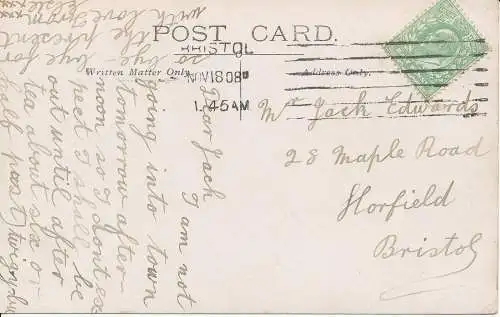 POST CARD.
BRISTOL
NOV 18 08
1.45AM
Written Matter Only.
Address Only.
Mr Jack Edwards
28 Maple Road
Horfield
Bristol
Dear Jack
I am not
going into town
tomorrow after-
noon so I dont es
pect I shall be
out until after
tea about six or
half past
so bye bye for
the present
with love from
Elsie xxx